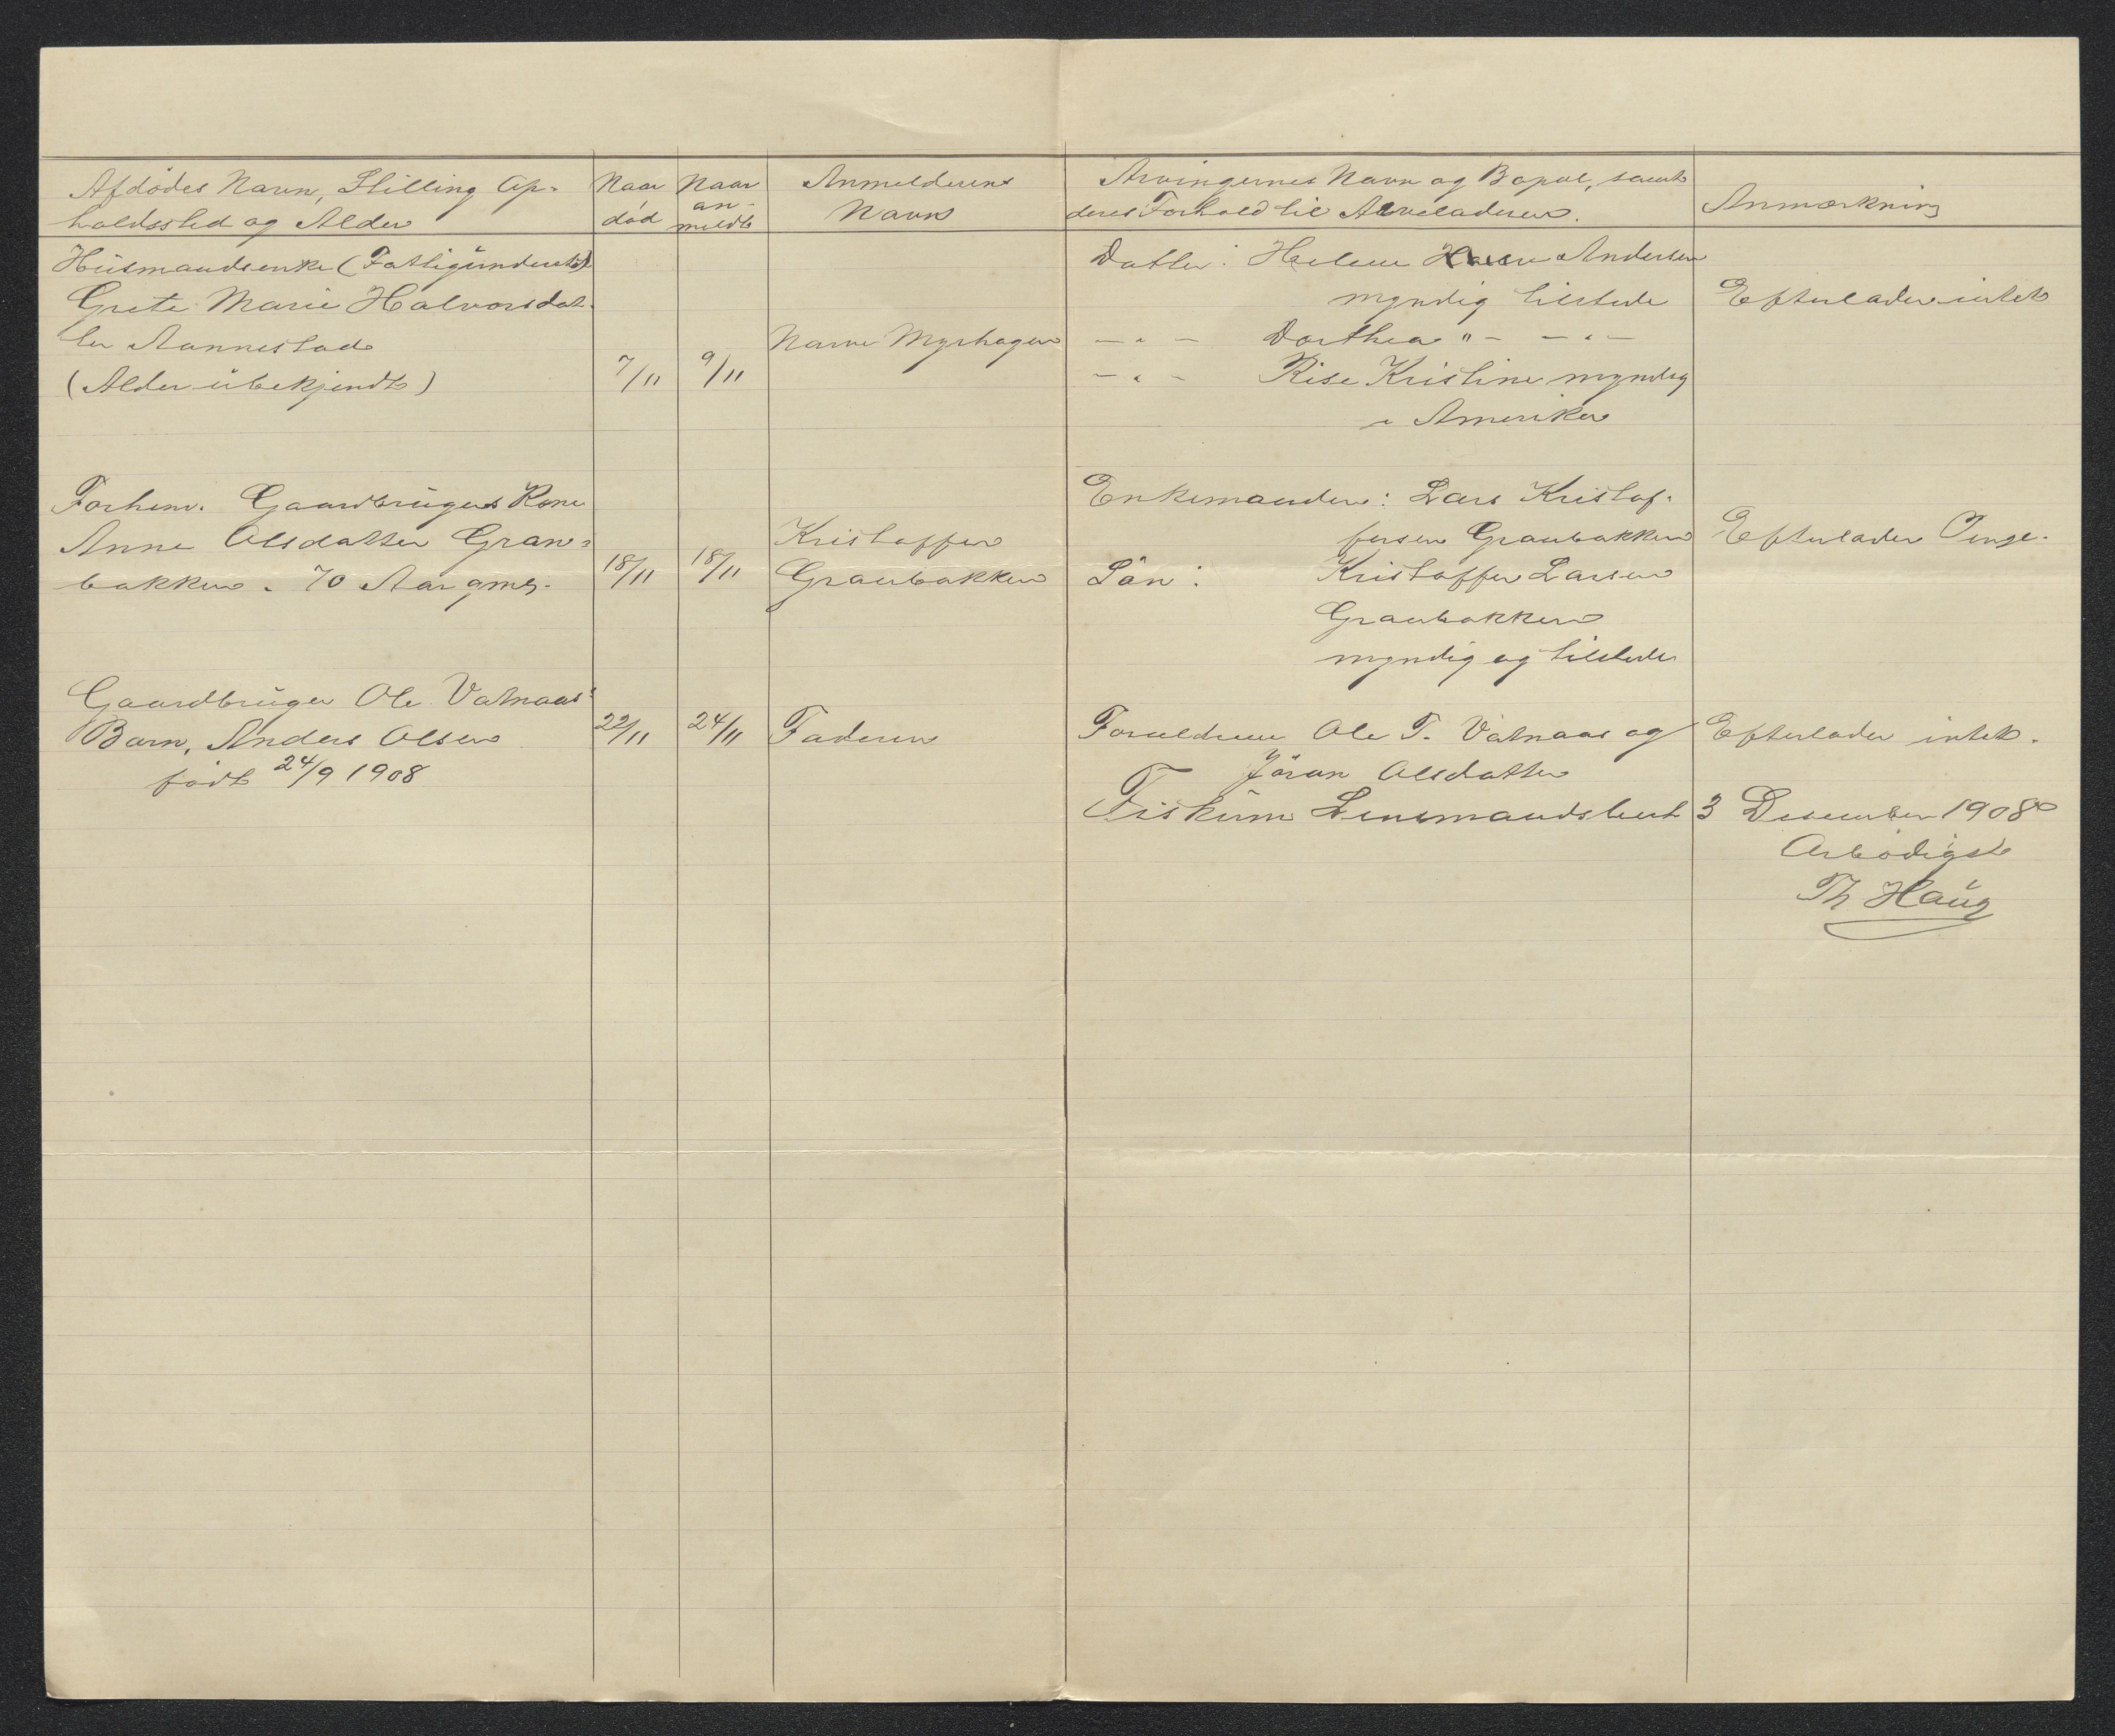 Afdödes Navn, Stilling Op-
holdssted og Alder
Naar
död
Naar
an-
meldt
Anmelderens
Navn
Arvingernes Navn og Bopæl, samt
deres Forhold til Arveladeren.
Anmærkning
Husmandsenke (Fattigunderst.)
Grete Marie Halvorsdat-
ter Aannestad
(Alder ubekjendt)
7/11
9/11
Narve Myrhagen
Datter: Helene Andersen
myndig tilstede
— " — Dorthea " — — " —
— " — Kristine myndig
i Amerika
Efterlader intet
Forhenv. Gaardbrugers Kone
Anne Olsdatter Gran=
bakken. 70 Aar gml.
18/11
18/11
Kristoffer
Granbakken
Enkemanden: Lars Kristof-
fersen Granbakken
Sön: Kristoffer Larsen
Granbakken
myndig og tilstede
Efterlader Penge.
Gaardbruger Ole Vatnaas'
Barn, Anders Olsen
födt 24/9 1908
22/11
24/11
Faderen
Forældrene Ole T. Vatnaas og
Jöran Olsdatter
Efterlader intet.
Fiskum Lensmandsbest 3 Desember 1908
Ærbödigst
Th Haug